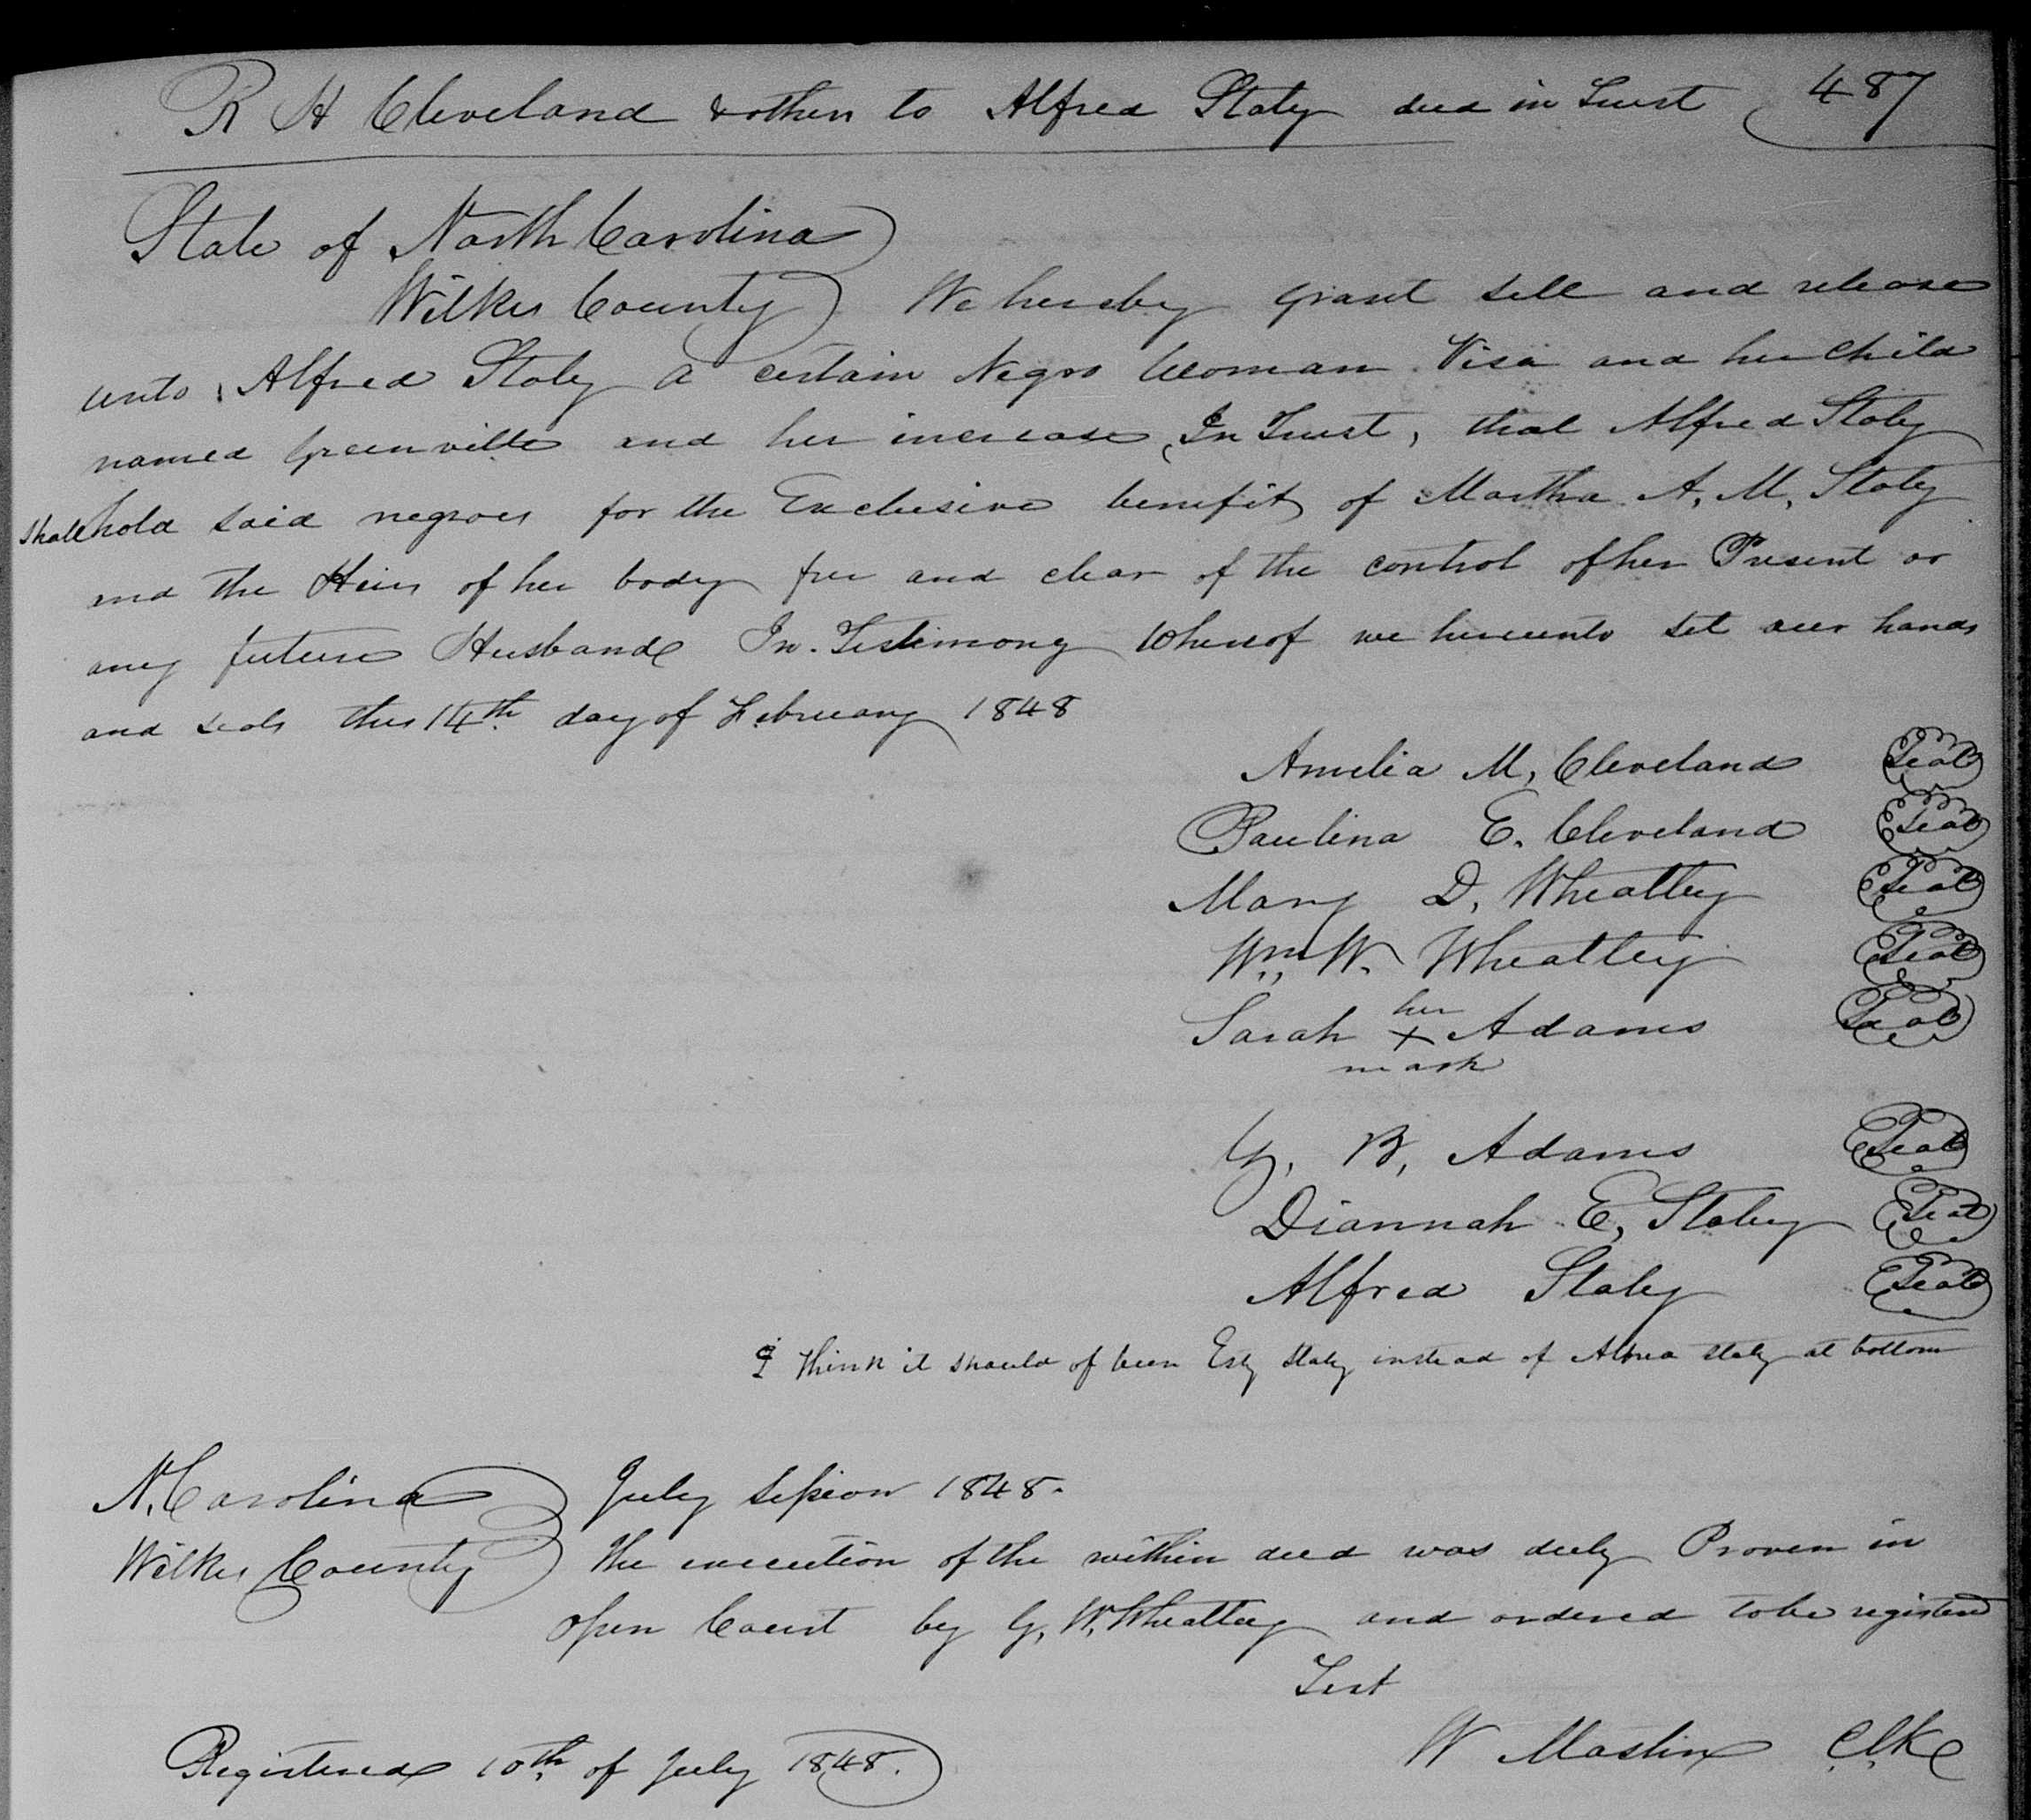 R H Cleveland & others to Alfred Staley deed in Trust 487
State of North Carolina
Wilkes County We hereby grant sell and release
unto Alfred Staley a certain Negro Woman Visa and her child
named Greenville and her increase, In Trust, that Alfred Staley
shall hold said negroes for the Exclusive benefit of Martha A. M. Staley
and the Heirs of her body free and clear of the control of her Present or
any future Husband In Testimony Whereof we hereunto set our hands
and seals this 14th day of February 1848
Amelia M, Cleveland Seal
Paulina E. Cleveland Seal
Mary D, Wheatley Seal
Wm W. Wheatley Seal
her
Sarah X Adams Seal
mark
G, B, Adams Seal
Diannah E, Staley Seal
Alfred Staley Seal
I think it should of been Esly Staley instead of Alfred Staley at bottom
N. Carolina July Session 1848.
Wilkes County The execution of the within deed was duly Proven in
open Court by G, W, Wheatley and ordered to be registered
Test
Registered 10th of July 1848. W Mastin Clk